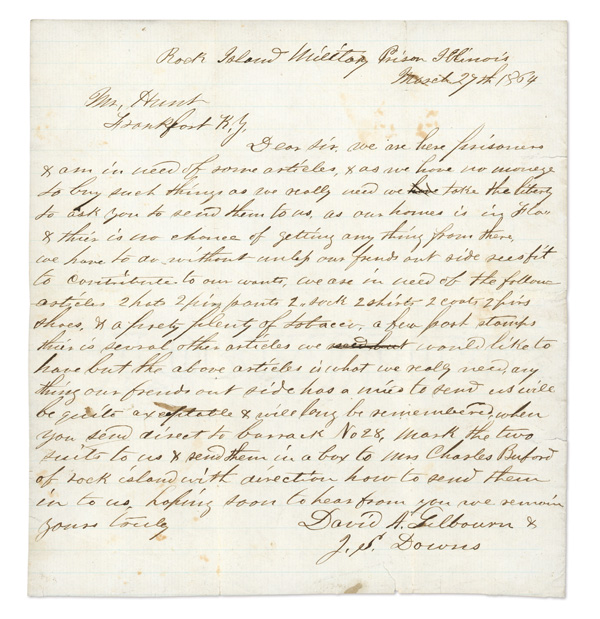 Rock Island Military Prison Illinois
March 27th 1864
Mr, Hunt
Frankfort K.y.
Dear Sir, we are here prisoners
& am in need of some articles, & as we have no money
to buy such things as we really need we have take the liberty
to ask you to send them to us, as our homes is in Flor
& thier is no chance of getting any thing from there,
we have to do without unless our frends out side sees fit
to contribute to our wants, we are in need of the follow
articles 2 hats 2 pir pants 2 sock 2 shirts 2 coats 2 pirs
shoes, & a pirety plenty of tobacco, a few post stamps
thier is sevral other articles we need but would like to
have but the above articles is what we really need any
thing our frends out side has a mind to send us will
be quite axeptable & will long be remembered, when
you send direct to barrack No 28, mark the two
suits to us & send them in a box to Mrs Charles Buford
of rock island with direction how to send them
in to us, hoping soon to hear from you we remain
yours truly
David A. Gilbourn &
J. S. Downs